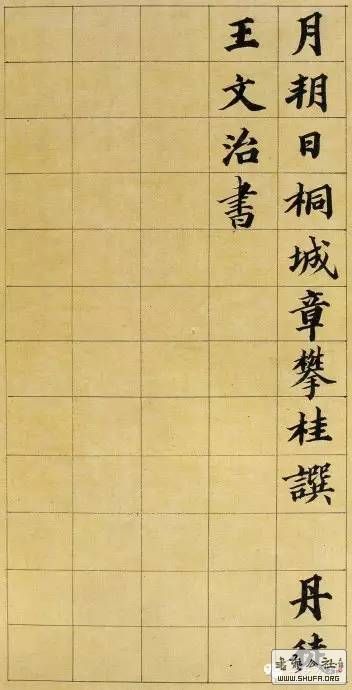 月朔日桐城章攀桂譔 丹徒
王文治書
WWW.SHUFA.ORG